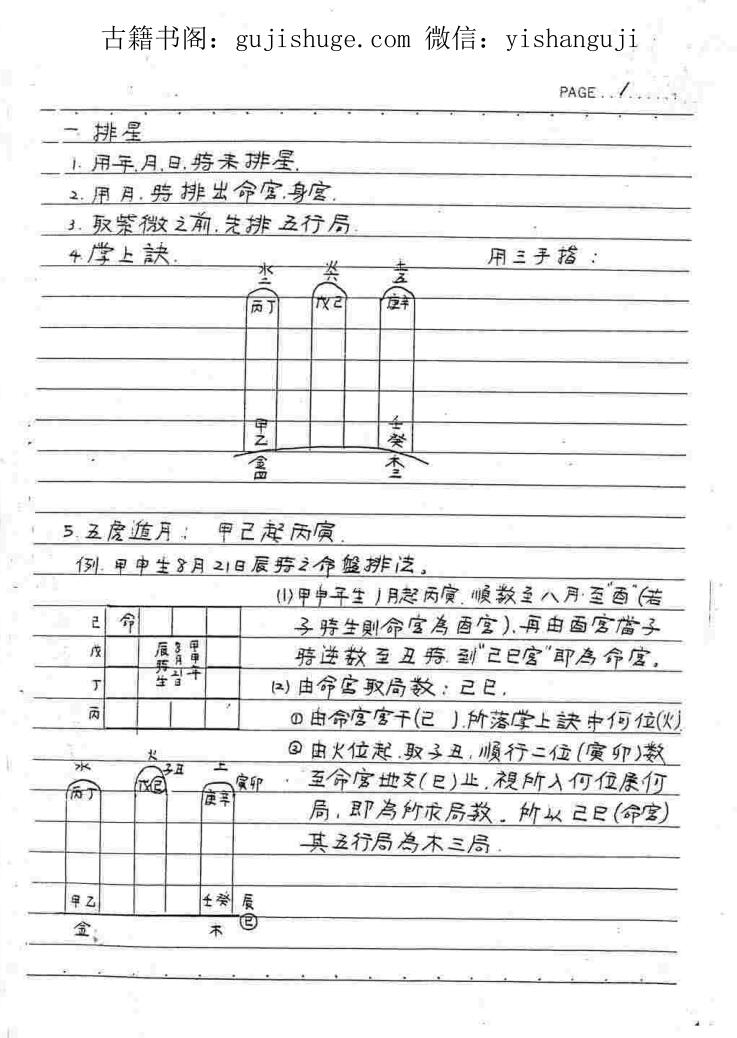 古籍书阁：gujishuge.com 微信：yishanguji
PAGE../......
一 排星
1. 用年.月.日.時來排星.
2. 用月.時排出命宮.身宮.
3. 取紫微之前.先排五行局.
4. 掌上訣. 用三手指：
水二 火六 土五
丙丁 戊己 庚辛
甲乙 壬癸
金四 木三
5. 五虎遁月： 甲己起丙寅.
例. 甲申生8月21日辰時之命盤排法。
(1)甲申年生1月起丙寅.順數至八月.至"酉"(若
子時生則命宮為酉宮).再由酉宮當子
時逆數至丑時.到"己巳宮"即為命宮。
(2)由命宮取局數：己巳.
①由命宮宮干(己 ).所落掌上訣中何位(火).
②由火位起.取子丑.順行二位(寅卯)數
至命宮地支(巳)止.視所入何位屬何
局.即為所求局數。所以己巳(命宮)
其五行局為木三局.
己 命
戊
丁
丙
甲申年
8月21日
辰時生
水 火 土
丙丁 戊己 子丑 庚辛 寅卯
甲乙 壬癸 辰
巳
金 木